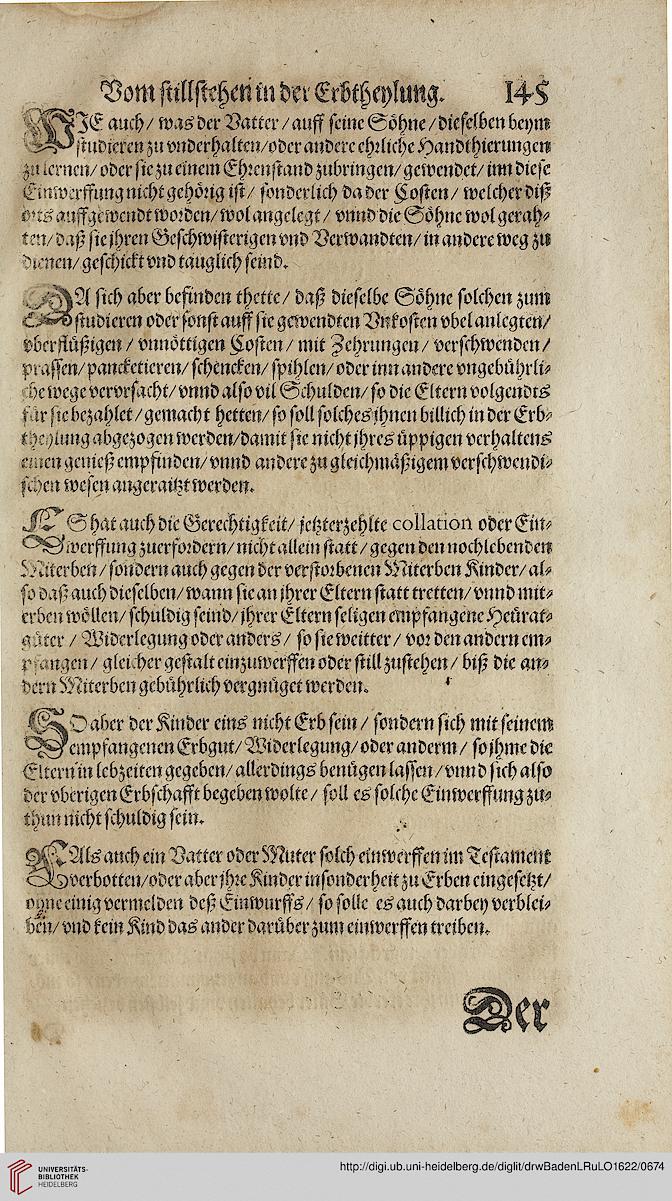 Vom stillstehen in der Erbtheylung. 145
WIE auch / was der Vatter / auff seine Söhne / dieselben beym
studieren zu vnderhalten / oder andere ehrliche Handthierungen
zu lernen / oder sie zu einem Ehrenstand zubringen / gewendet / inn diese
Einwerffung nicht gehörig ist / sonderlich da der Costen / welcher diß
orts auffgewendt worden / wol angelegt / vnnd die Söhne wol gerah⸗
ten / daß sie jhren Geschwisterigen vnd Verwandten / in andere weg zu
dienen / geschickt vnd tauglich seind.
DA sich aber befinden thette / daß dieselbe Söhne solchen zum
studieren oder sonst auff sie gewendten Vnkosten vbel anlegten /
vberflüßigen / vnnöttigen Costen / mit Zehrungen / verschwenden /
prassen / pancketieren / schencken / spihlen / oder inn andere vngebührli⸗
che wege vervrsacht / vnnd also vil Schulden / so die Eltern volgendts
für sie bezahlet / gemacht hetten / so soll solches jhnen billich in der Erb⸗
theylung abgezogen werden / damit sie nicht jhres üppigen verhaltens
einen genieß empfinden / vnnd andere zu gleichmäßigem verschwendi⸗
schen wesen angeraitzt werden.
ES hat auch die Gerechtigkeit / jetzterzehlte collation oder Ein⸗
werffung zuerfordern / nicht allein statt / gegen den noch lebenden
Miterben / sondern auch gegen der verstorbenen Miterben Kinder / al⸗
so daß auch dieselben / wann sie an jhrer Eltern statt tretten / vnnd mit⸗
erben wöllen / schuldig seind / jhrer Eltern seligen empfangene Heürat⸗
güter / Widerlegung oder anders / so sie weitter / vor den andern em⸗
pfangen / gleicher gestalt einzuwerffen oder still zustehen / biß die an⸗
dern Miterben gebührlich vergnüget werden.
SO aber der Kinder eins nicht Erb sein / sondern sich mit seinem
empfangenen Erbgut / Widerlegung / oder anderm / so jhme die
Eltern in lebzeiten gegeben / allerdings benügen lassen / vnnd sich also
der vberigen Erbschafft begeben wolte / soll es solche Einwerffung zu⸗
thun nicht schuldig sein.
Als auch ein Vatter oder Muter solch einwerffen im Testament
verbotten / oder aber jhre Kinder insonderheit zu Erben eingesetzt /
ohne einig vermelden deß Einwurffs / so solle es auch darbey verblei⸗
ben / vnd kein Kind das ander darüber zum einwerffen treiben.
Der
UNIVERSITÄTS-
BIBLIOTHEK
HEIDELBERG
http://digi.ub.uni-heidelberg.de/diglit/drwBadenLRuLO1622/0674